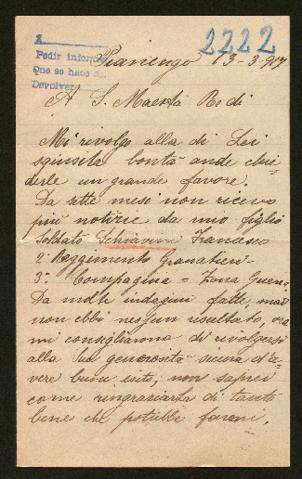 1
Pedir informe
Que se hace
Devolver
2222
Pianengo 13-3-917
A S. Maestà Re di
Mi rivolgo alla di Lei
squisita bontà onde chie-
derle un grande favore.
Da sette mesi non ricevo
più notizie da mio figlio
soldato Schiavini Francesco
2° Reggimento Granatieri
3a Compagnia - Zona Guerra
Da molte indagini fatte, mai
non ebbi nessun risultato, ora
mi consigliarono di rivolgersi
alla Sua generosità sicura d'a-
vere buon esito, non saprei
come ringraziarla di tanto
bene che potrebbe farmi.